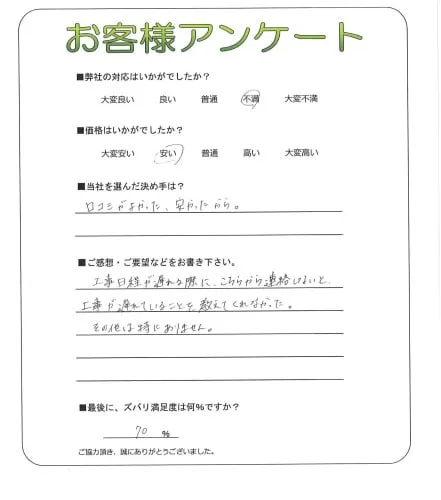 お客様アンケート
■弊社の対応はいかがでしたか？
大変良い 良い 普通 不満 大変不満
■価格はいかがでしたか？
大変安い 安い 普通 高い 大変高い
■当社を選んだ決め手は？
口コミがよかった、安かったから。
■ご感想・ご要望などをお書き下さい。
工事日経が遅れる際に、こちらから連絡しないと、
工事が遅れていることを教えてくれなかった。
その他は特にありません。
■最後に、ズバリ満足度は何%ですか？
70 %
ご協力頂き、誠にありがとうございました。